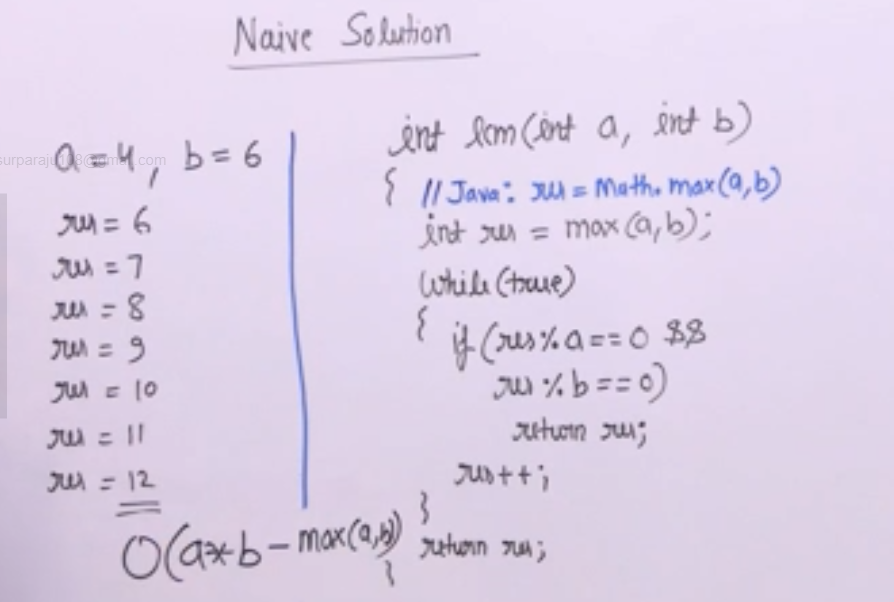 Naive Solution
a = 4, b = 6
res = 6
res = 7
res = 8
res = 9
res = 10
res = 11
res = 12
O(a*b - max(a,b))
int lcm(int a, int b)
{ // Java: res = Math.max(a,b)
int res = max(a,b);
while(true)
{ if(res%a==0 &&
res%b==0)
return res;
res++;
}
return res;
}